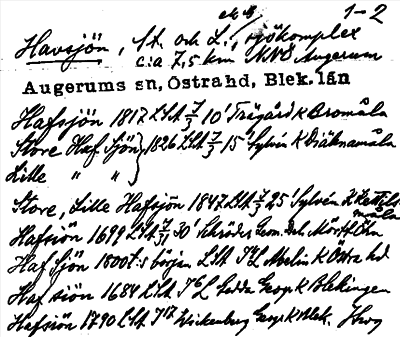 ek bl 1-2
Havsjön, St. och L., sjökomplex
c:a 7,5 km NNÖ Augerum
Augerums sn, Östra hd, Blek. län
Hafsjön 1817 LSA 7/3 10' Trägård K Bromåla
Store Haf Sjön } 1826 LSA 7/3 15' Sylvén K Diäknamåla
Lille " "
Store, Lille Hafsjön 1847 LSA 7/3 25' Sylvén K Kettilsmåla
Hafsiön 1699 LSA 7/31 30' Schröder Geom. Del.
Haf Sjön 1800t:s början LSA I L Abelin K Östra hd
Haf siön 1684 LSA I 6 L Gedda Geogr K Blekingen
Hafsiön 1790 LSA I 17 Wickenberg Geogr K Blek.